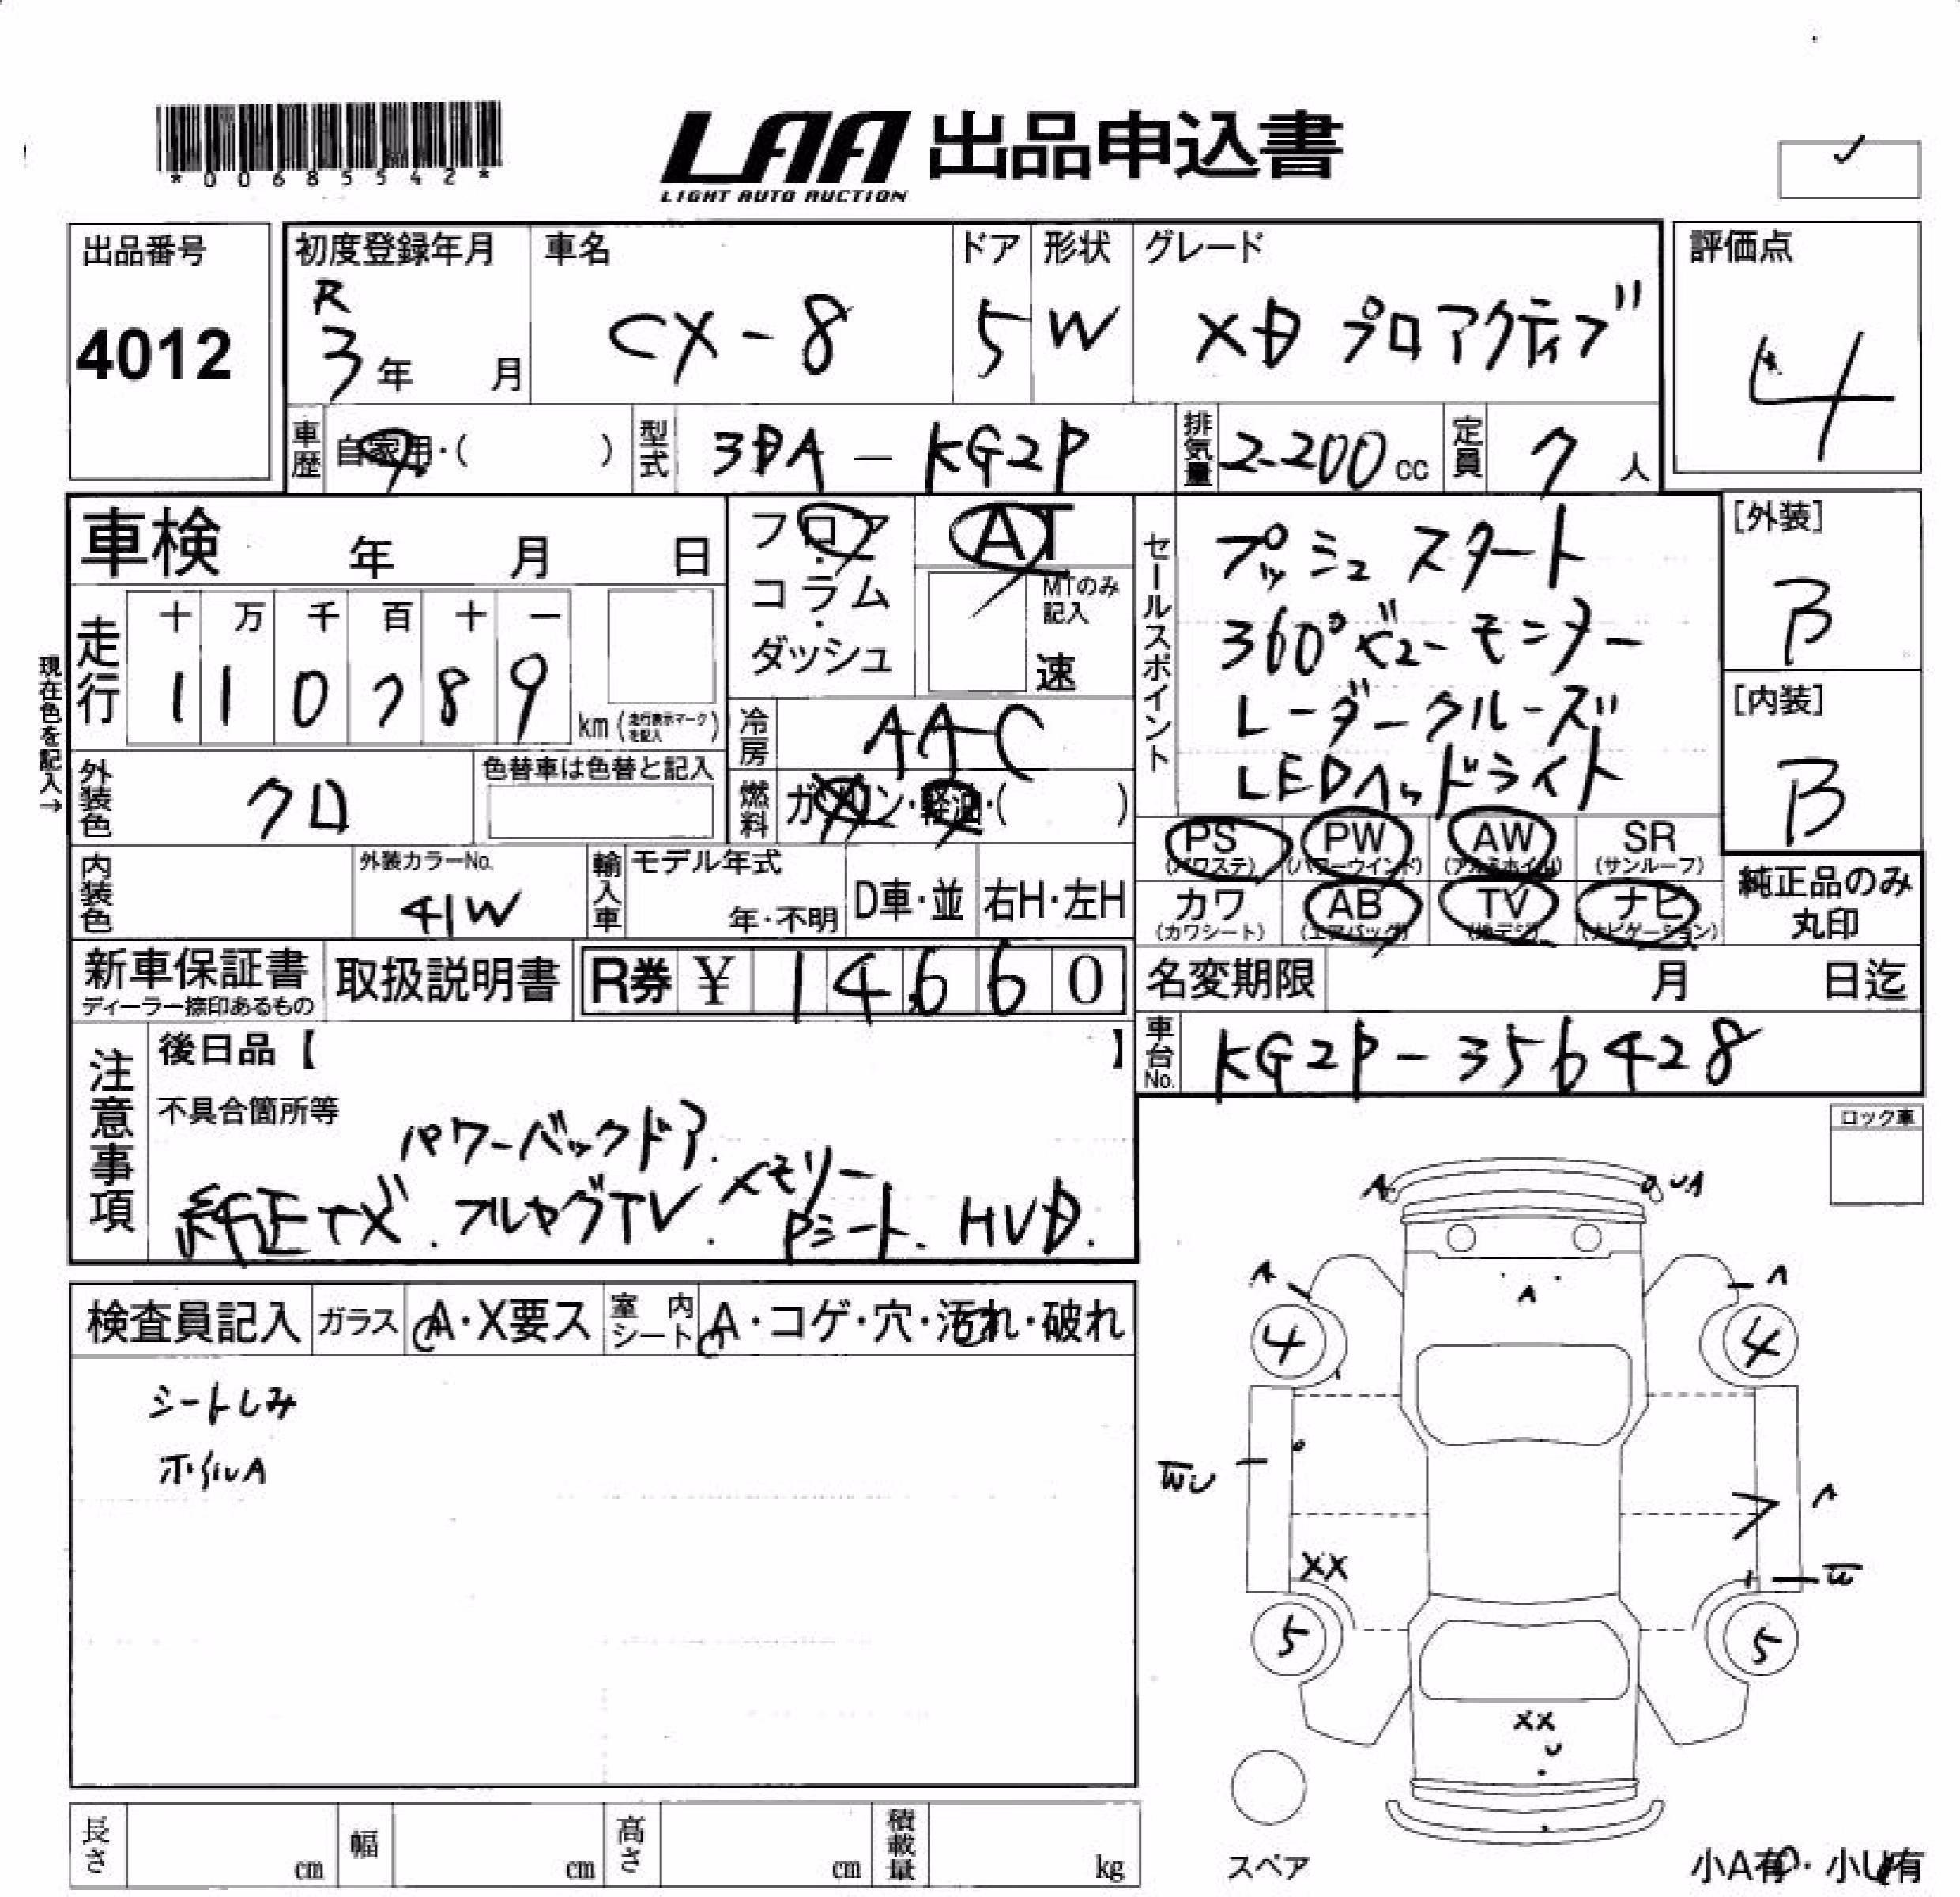 *00685542*
LAA 出品申込書
LIGHT AUTO AUCTION
出品番号
4012
初度登録年月
R
3年 月
車名
CX-8
ドア
5
形状
W
グレード
XD プロアクティブ
評価点
4
車歴
自家用・( )
型式
3DA-KG2P
排気量
2200cc
定員
7人
車検 年 月 日
フロア・コラム・ダッシュ
AT
MTのみ記入
速
セールスポイント
プッシュスタート
360°ビューモニター
レーダークルーズ
LEDヘッドライト
[外装]
B
[内装]
B
現在色を記入→
走行
十 万 千 百 十 一
1 1 0 7 8 9
km (走行表示マークを記入)
冷房
AAC
外装色
クロ
色替車は色替と記入
燃料
ガソリン・軽油・( )
PS
(パワステ)
PW
(パワーウインド)
AW
(アルミホイル)
SR
(サンルーフ)
カワ
(カワシート)
AB
(エアバッグ)
TV
(地デジ)
ナビ
(ナビゲーション)
純正品のみ
丸印
内装色
外装カラーNo.
41W
輸入車
モデル年式
年・不明
D車・並
右H・左H
新車保証書
ディーラー捺印あるもの
取扱説明書
R券 ¥ 1 4 6 6 0
名変期限 月 日迄
車台No.
KG2P-356428
注意事項
後日品【 】
不具合箇所等
パワーバックドア.
純正ナビ. フルセグTV. メモリー
Pシート. HUD.
ロック車
検査員記入
ガラス
A・X要ス
室内シート
A・コゲ・穴・汚れ・破れ
シートしみ
ホイルA
A
UA
A
A
A
4
4
WU
A
XX
W
5
5
XX
U
スペア
小A有・小U有
長さ cm
幅 cm
高さ cm
積載量 kg